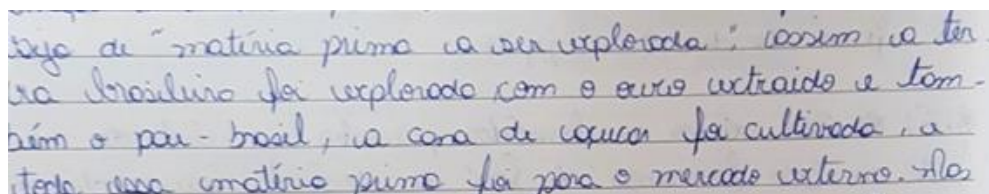 de matéria prima a ser explorada; assim a ter
ra brasileira foi explorada com o ouro extraido e tam-
bém o pau-brasil, a cana de açucar foi cultivada, e
toda essa matéria prima foi para o mercado externo. Nos